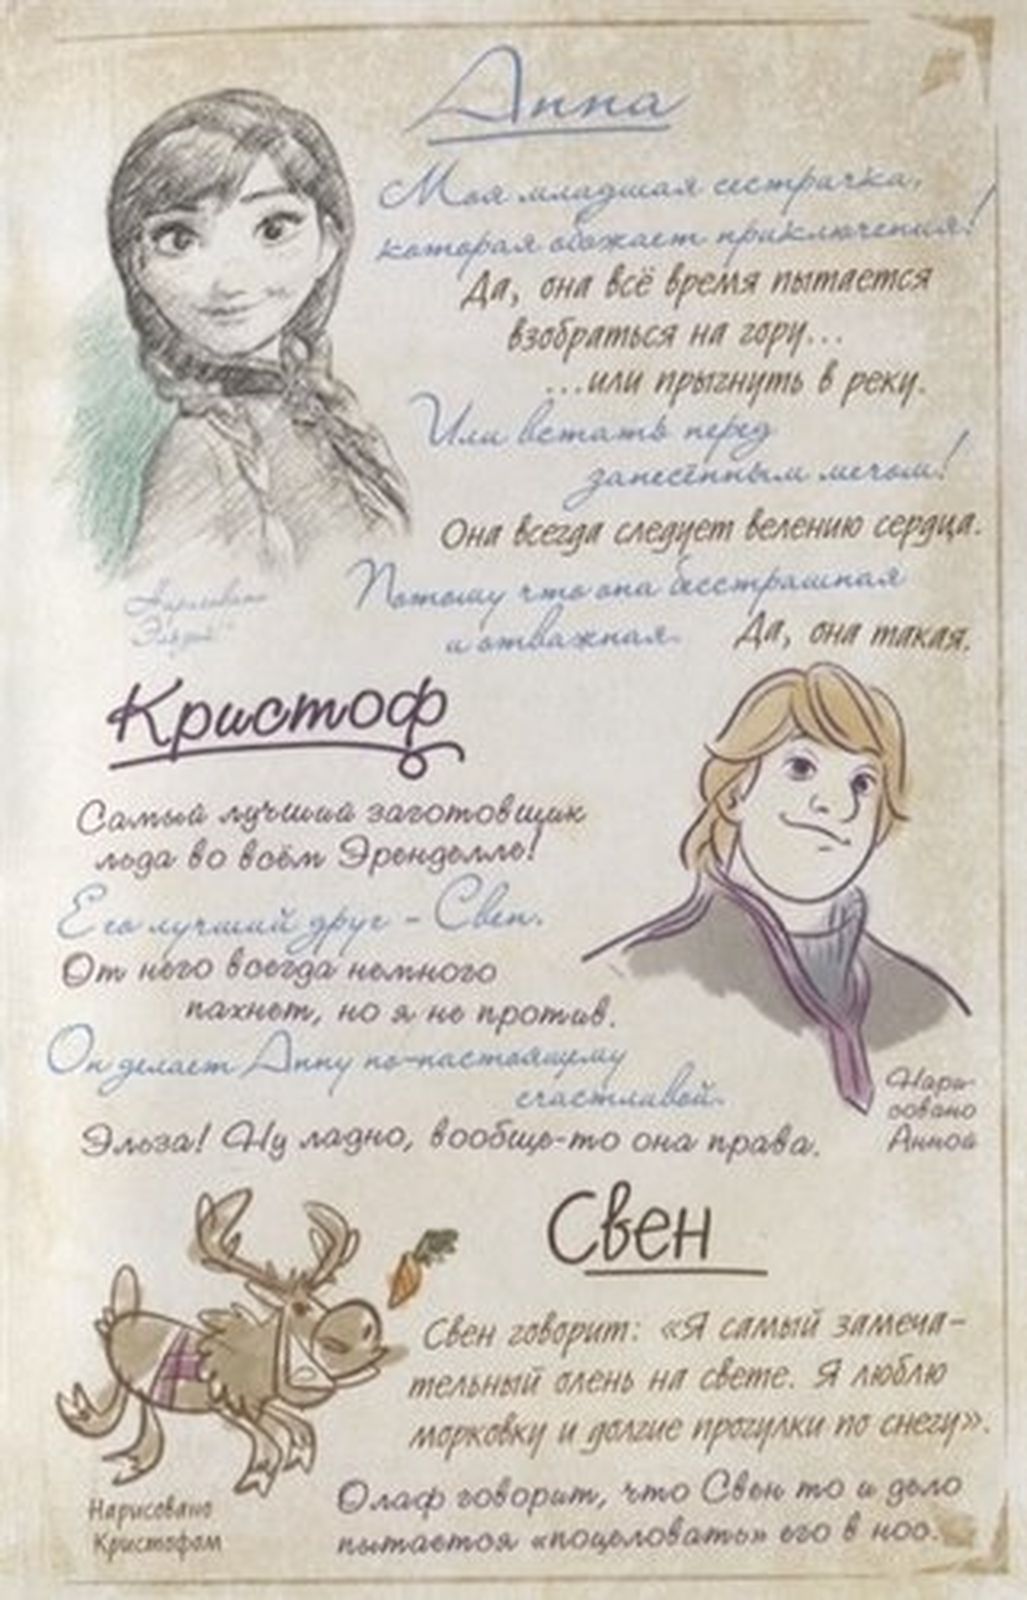 Анна
Моя младшая сестричка,
которая обожает приключения!
Да, она всё время пытается
взобраться на гору...
...или прыгнуть в реку.
Или встать перед
занесённым мечом!
Она всегда следует велению сердца.
Потому что она бесстрашная
и отважная.
Да, она такая.
Нарисовано
Эльзой
Кристоф
Самый лучший заготовщик
льда во всём Эренделле!
Его лучший друг – Свен.
От него всегда немного
пахнет, но я не против.
Он делает Анну по-настоящему
счастливой.
Эльза! Ну ладно, вообще-то она права.
Нари-
совано
Анной
Свен
Свен говорит: «Я самый замеча-
тельный олень на свете. Я люблю
морковку и долгие прогулки по снегу».
Олаф говорит, что Свен то и дело
пытается «поцеловать» его в нос.
Нарисовано
Кристофом